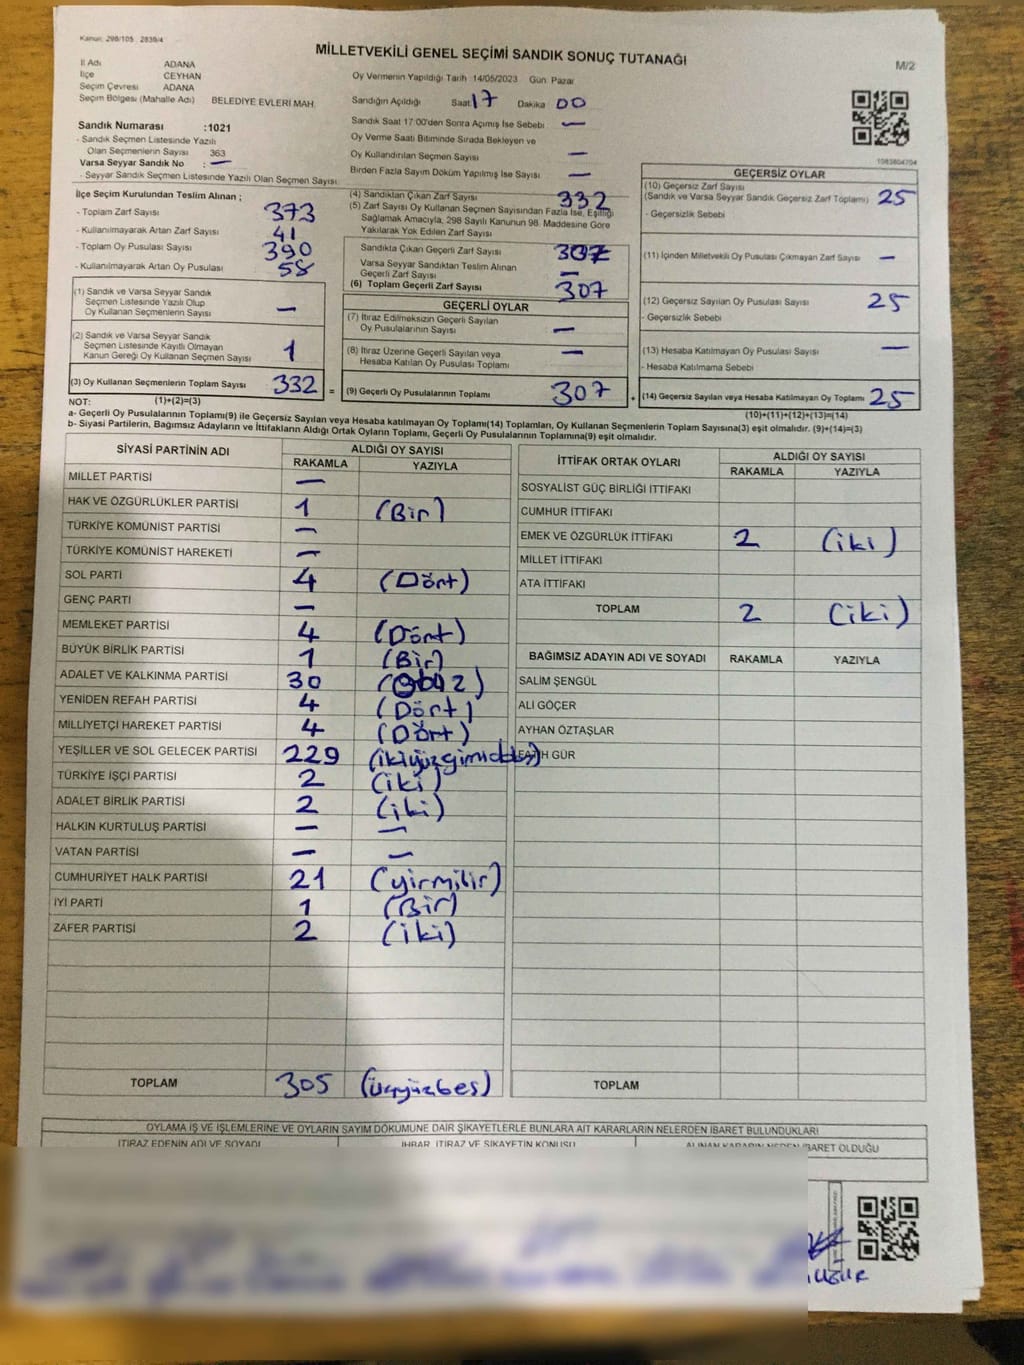 Kanun: 298/105 2839/4
MİLLETVEKİLİ GENEL SEÇİMİ SANDIK SONUÇ TUTANAĞI
M/2
İl Adı ADANA
İlçe CEYHAN
Seçim Çevresi ADANA
Seçim Bölgesi (Mahalle Adı) BELEDİYE EVLERİ MAH.
Sandık Numarası :1021
- Sandık Seçmen Listesinde Yazılı
Olan Seçmenlerin Sayısı 363
Varsa Seyyar Sandık No : —
- Seyyar Sandık Seçmen Listesinde Yazılı Olan Seçmen Sayısı
Oy Vermenin Yapıldığı Tarih :14/05/2023 Gün Pazar
Sandığın Açıldığı Saat 17 Dakika 00
Sandık Saat 17:00'den Sonra Açımış İse Sebebi —
Oy Verme Saati Bitiminde Sırada Bekleyen ve
Oy Kullandırılan Seçmen Sayısı —
Birden Fazla Sayım Döküm Yapılmış İse Sayısı —
1083604704
İlçe Seçim Kurulundan Teslim Alınan ;
- Toplam Zarf Sayısı 373
- Kullanılmayarak Artan Zarf Sayısı 41
- Toplam Oy Pusulası Sayısı 390
- Kullanılmayarak Artan Oy Pusulası 58
(1) Sandık ve Varsa Seyyar Sandık
Seçmen Listesinde Yazılı Olup
Oy Kullanan Seçmenlerin Sayısı —
(2) Sandık ve Varsa Seyyar Sandık
Seçmen Listesinde Kayıtlı Olmayan
Kanun Gereği Oy Kullanan Seçmen Sayısı 1
(3) Oy Kullanan Seçmenlerin Toplam Sayısı 332 =
(4) Sandıktan Çıkan Zarf Sayısı 332
(5) Zarf Sayısı Oy Kullanan Seçmen Sayısından Fazla İse, Eşitliği
Sağlamak Amacıyla, 298 Sayılı Kanunun 98. Maddesine Göre
Yakılarak Yok Edilen Zarf Sayısı
Sandıkta Çıkan Geçerli Zarf Sayısı 307
Varsa Seyyar Sandıktan Teslim Alınan
Geçerli Zarf Sayısı —
(6) Toplam Geçerli Zarf Sayısı 307
GEÇERLİ OYLAR
(7) İtiraz Edilmeksizin Geçerli Sayılan
Oy Pusulalarının Sayısı —
(8) İtiraz Üzerine Geçerli Sayılan veya
Hesaba Katılan Oy Pusulası Toplamı —
(9) Geçerli Oy Pusulalarının Toplamı 307 +
GEÇERSİZ OYLAR
(10) Geçersiz Zarf Sayısı
(Sandık ve Varsa Seyyar Sandık Geçersiz Zarf Toplamı) 25
- Geçersizlik Sebebi
(11) İçinden Milletvekili Oy Pusulası Çıkmayan Zarf Sayısı —
(12) Geçersiz Sayılan Oy Pusulası Sayısı 25
- Geçersizlik Sebebi
(13) Hesaba Katılmayan Oy Pusulası Sayısı —
- Hesaba Katılmama Sebebi
(14) Geçersiz Sayılan veya Hesaba Katılmayan Oy Toplamı 25
NOT: (1)+(2)=(3) (10)+(11)+(12)+(13)=(14)
a- Geçerli Oy Pusulasının Toplamı(9) ile Geçersiz Sayılan veya Hesaba katılmayan Oy Toplamı(14) Toplamları, Oy Kullanan Seçmenlerin Toplam Sayısına(3) eşit olmalıdır. (9)+(14)=(3)
b- Siyasi Partilerin, Bağımsız Adayların ve İttifakların Aldığı Ortak Oyların Toplamı, Geçerli Oy Pusulalarının Toplamına(9) eşit olmalıdır.
SİYASİ PARTİNİN ADI ALDIĞI OY SAYISI
RAKAMLA YAZIYLA
MİLLET PARTİSİ —
HAK VE ÖZGÜRLÜKLER PARTİSİ 1 (Bir)
TÜRKİYE KOMÜNİST PARTİSİ —
TÜRKİYE KOMÜNİST HAREKETİ —
SOL PARTİ 4 (Dört)
GENÇ PARTİ —
MEMLEKET PARTİSİ 4 (Dört)
BÜYÜK BİRLİK PARTİSİ 1 (Bir)
ADALET VE KALKINMA PARTİSİ 30
YENİDEN REFAH PARTİSİ 4 (Dört)
MİLLİYETÇİ HAREKET PARTİSİ 4 (Dört)
YEŞİLLER VE SOL GELECEK PARTİSİ 229
TÜRKİYE İŞÇİ PARTİSİ 2 (iki)
ADALET BİRLİK PARTİSİ 2 (iki)
HALKIN KURTULUŞ PARTİSİ — —
VATAN PARTİSİ — —
CUMHURİYET HALK PARTİSİ 21 (yirmilir)
İYİ PARTİ 1 (Bir)
ZAFER PARTİSİ 2 (iki)
TOPLAM 305 (üçyüzbeş)
İTTİFAK ORTAK OYLARI ALDIĞI OY SAYISI
RAKAMLA YAZIYLA
SOSYALİST GÜÇ BİRLİĞİ İTTİFAKI
CUMHUR İTTİFAKI
EMEK VE ÖZGÜRLÜK İTTİFAKI 2 (iki)
MİLLET İTTİFAKI
ATA İTTİFAKI
TOPLAM 2 (iki)
BAĞIMSIZ ADAYIN ADI VE SOYADI RAKAMLA YAZIYLA
SALİM ŞENGÜL
ALİ GÖÇER
AYHAN ÖZTAŞLAR
FATİH GÜR
TOPLAM
OYLAMA İŞ VE İŞLEMLERİNE VE OYLARIN SAYIM DÖKÜMÜNE DAİR ŞİKAYETLERLE BUNLARA AİT KARARLARIN NELERDEN İBARET BULUNDUKLARI
İTİRAZ EDENİN ADI VE SOYADI İHBAR, İTİRAZ VE ŞİKAYETİN KONUSU ALINAN KARARIN NEDEN İBARET OLDUĞU